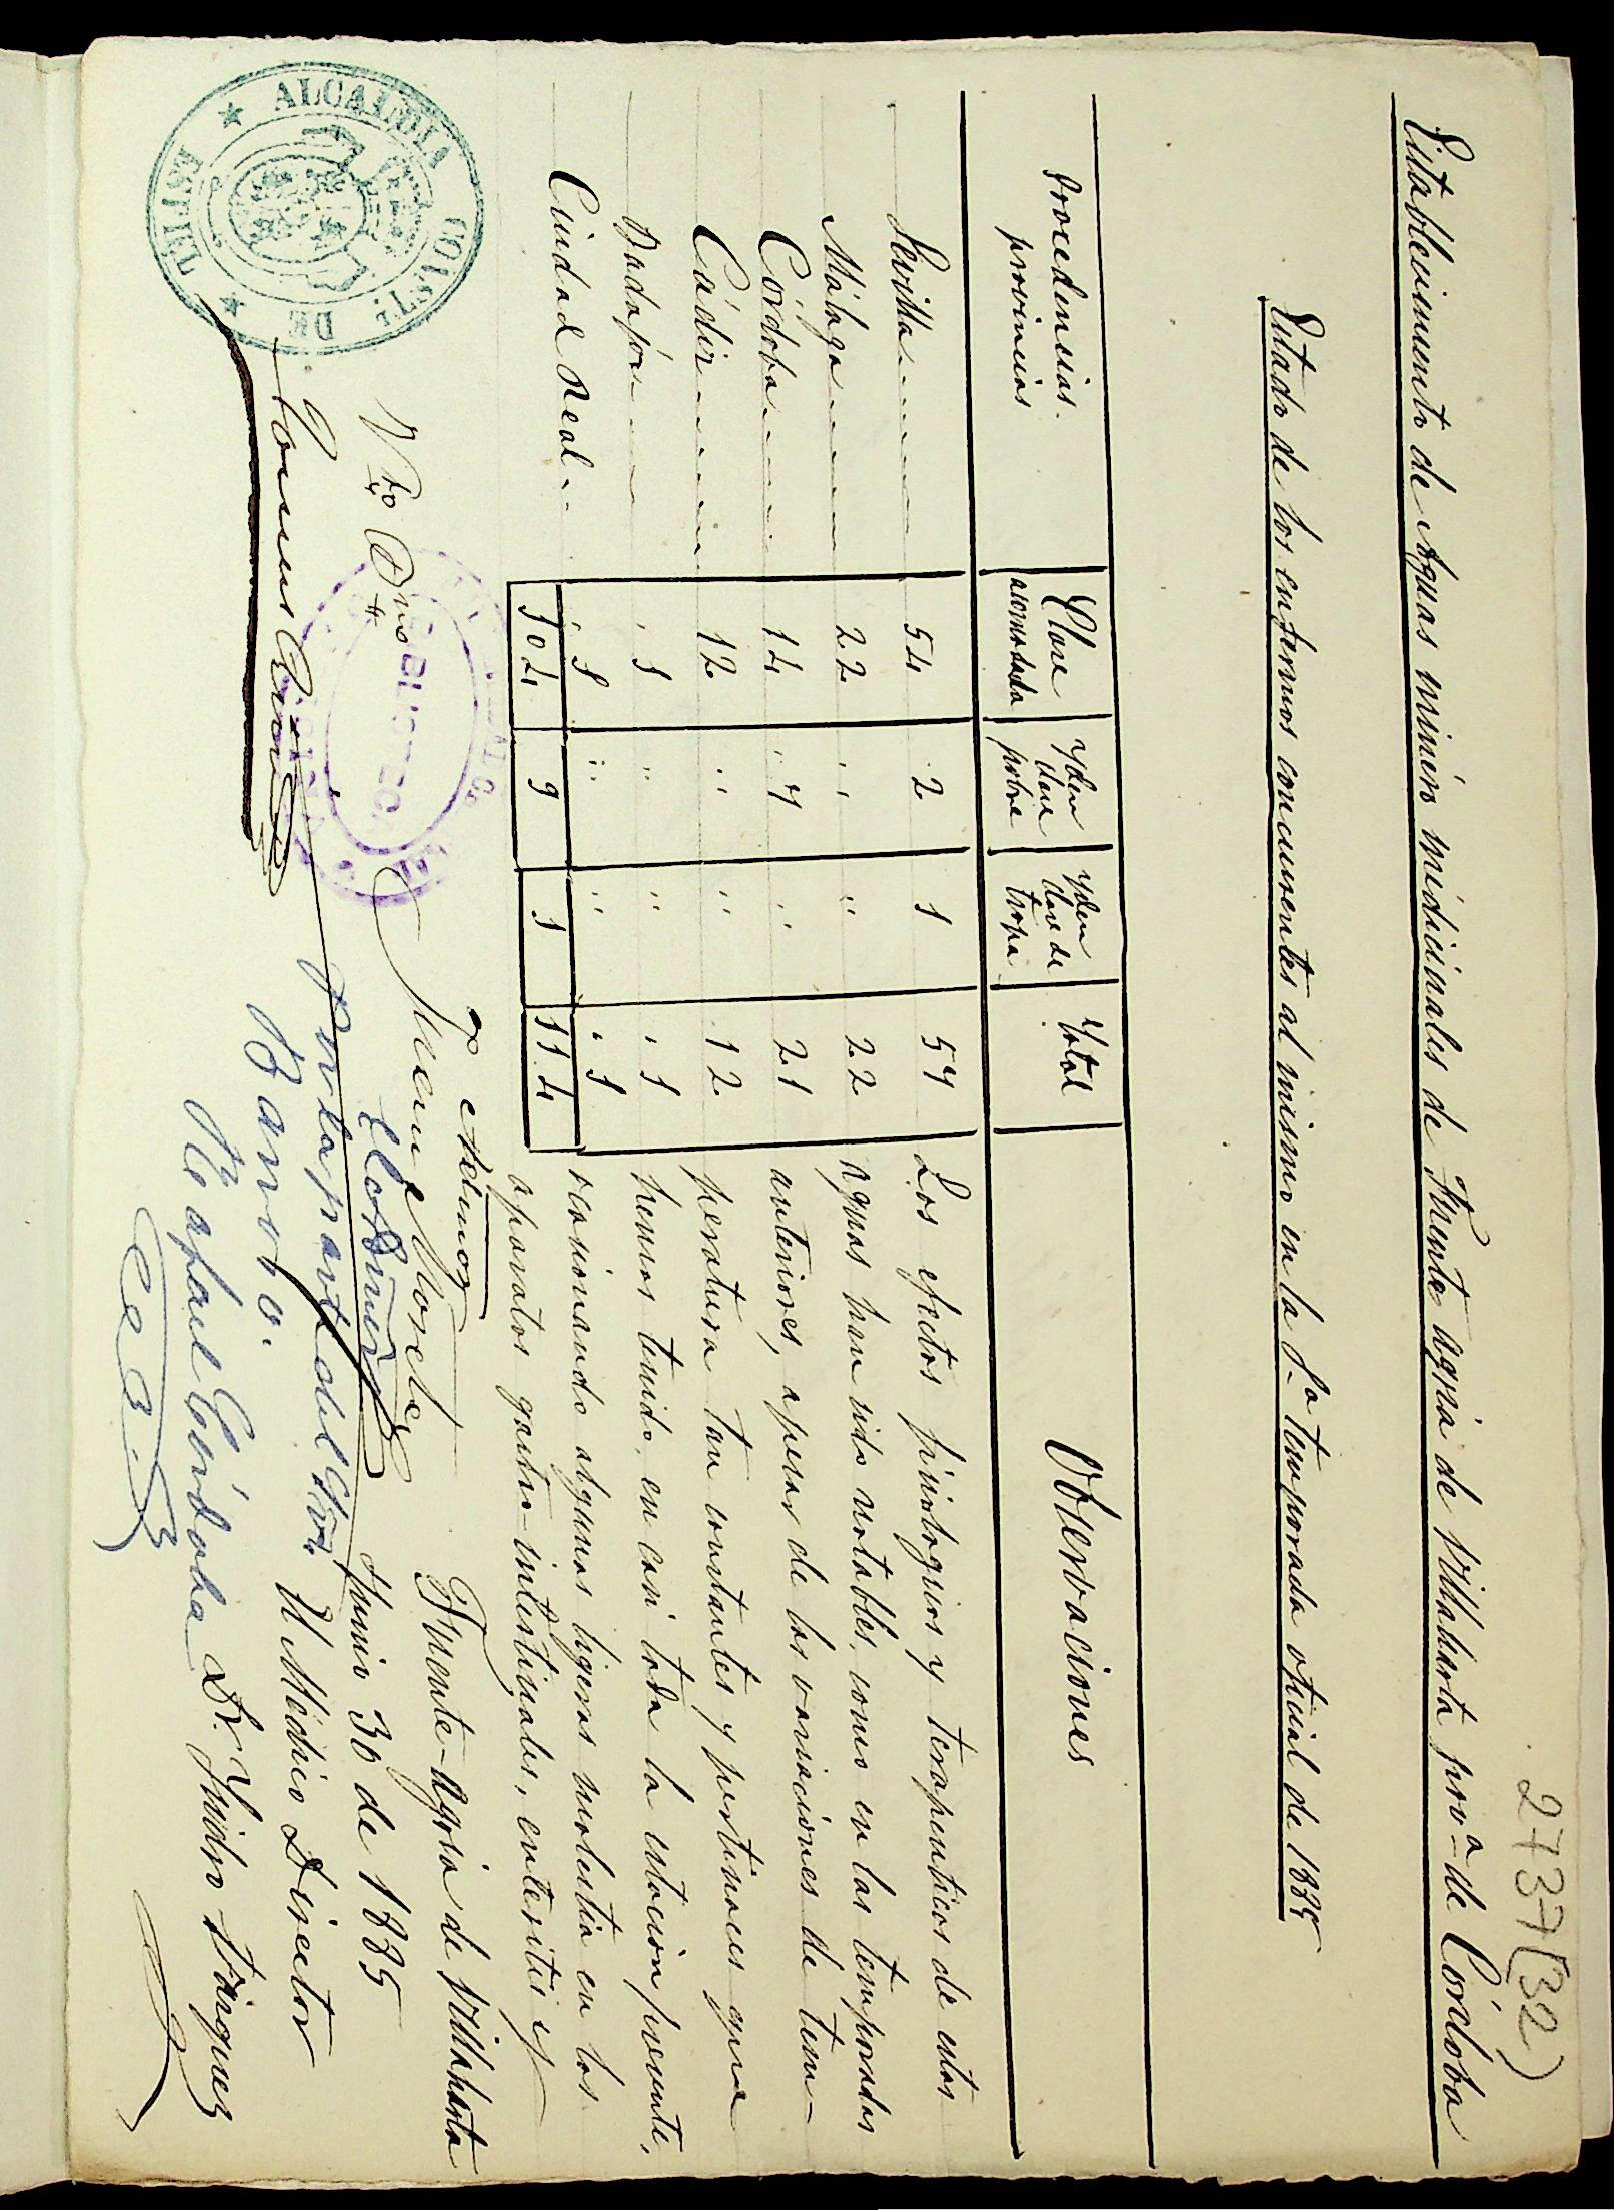 2737(32)
Establecimiento de Aguas minero medicinales de Fuente agria de Villaharta prov.ª de Córdoba
Estado de los enfermos concurrentes al mismo en la 1.ª temporada oficial de 1885
Procedencias. provincias | Clase acomodada | Yden clase pobre | Yden clase de tropa | Total | Observaciones
Sevilla | 54 | 2 | 1 | 57
Málaga | 22 | " | " | 22
Córdoba | 14 | 7 | " | 21
Cádiz | 12 | " | " | 12
Badajoz | 1 | " | " | 1
Ciudad Real | 1 | " | " | 1
104 | 9 | 1 | 114
Los efectos fisiologicos y terapeuticos de estas
aguas han sido notables, como en las temporadas
anteriores, apesar de las variaciones de tem-
peratura tan constantes y pertinaces que
hemos tenido, en casi toda la estacion presente,
ocasionando algunas ligeras molestia en los
aparatos gastro-intestinales, enteritis y
Fuente-Agria de Villaharta
Junio 30 de 1885
El Médico Director
Dr. Ysidro Vázquez
Vto Bno
Juan Morales
Por la part del Gva
Barvo.
Rafael Córdoba
ALCALDIA CONST. DE ESPIEL